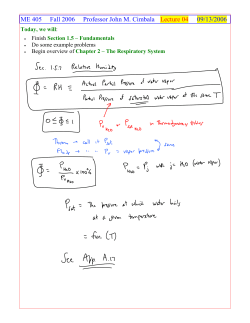 ME 405 Fall 2006 Professor John M. Cimbala Lecture 04 09/13/2006
Today, we will:
• Finish Section 1.5 – Fundamentals
• Do some example problems
• Begin overview of Chapter 2 – The Respiratory System
Sec. 1.5.7 Relative Humidity
Φ = RH ≡ Actual Partial Pressure of water vapor
Partial Pressure of saturated water vapor at the same T
0 ≤ Φ ≤ 1
Thermo → call it Psat
same
Φ = P_H2O / × 100%
with j = H2O (water vapor)
Psat = The pressure at which water boils
at a given temperature
= fnc (T)
See App A.17